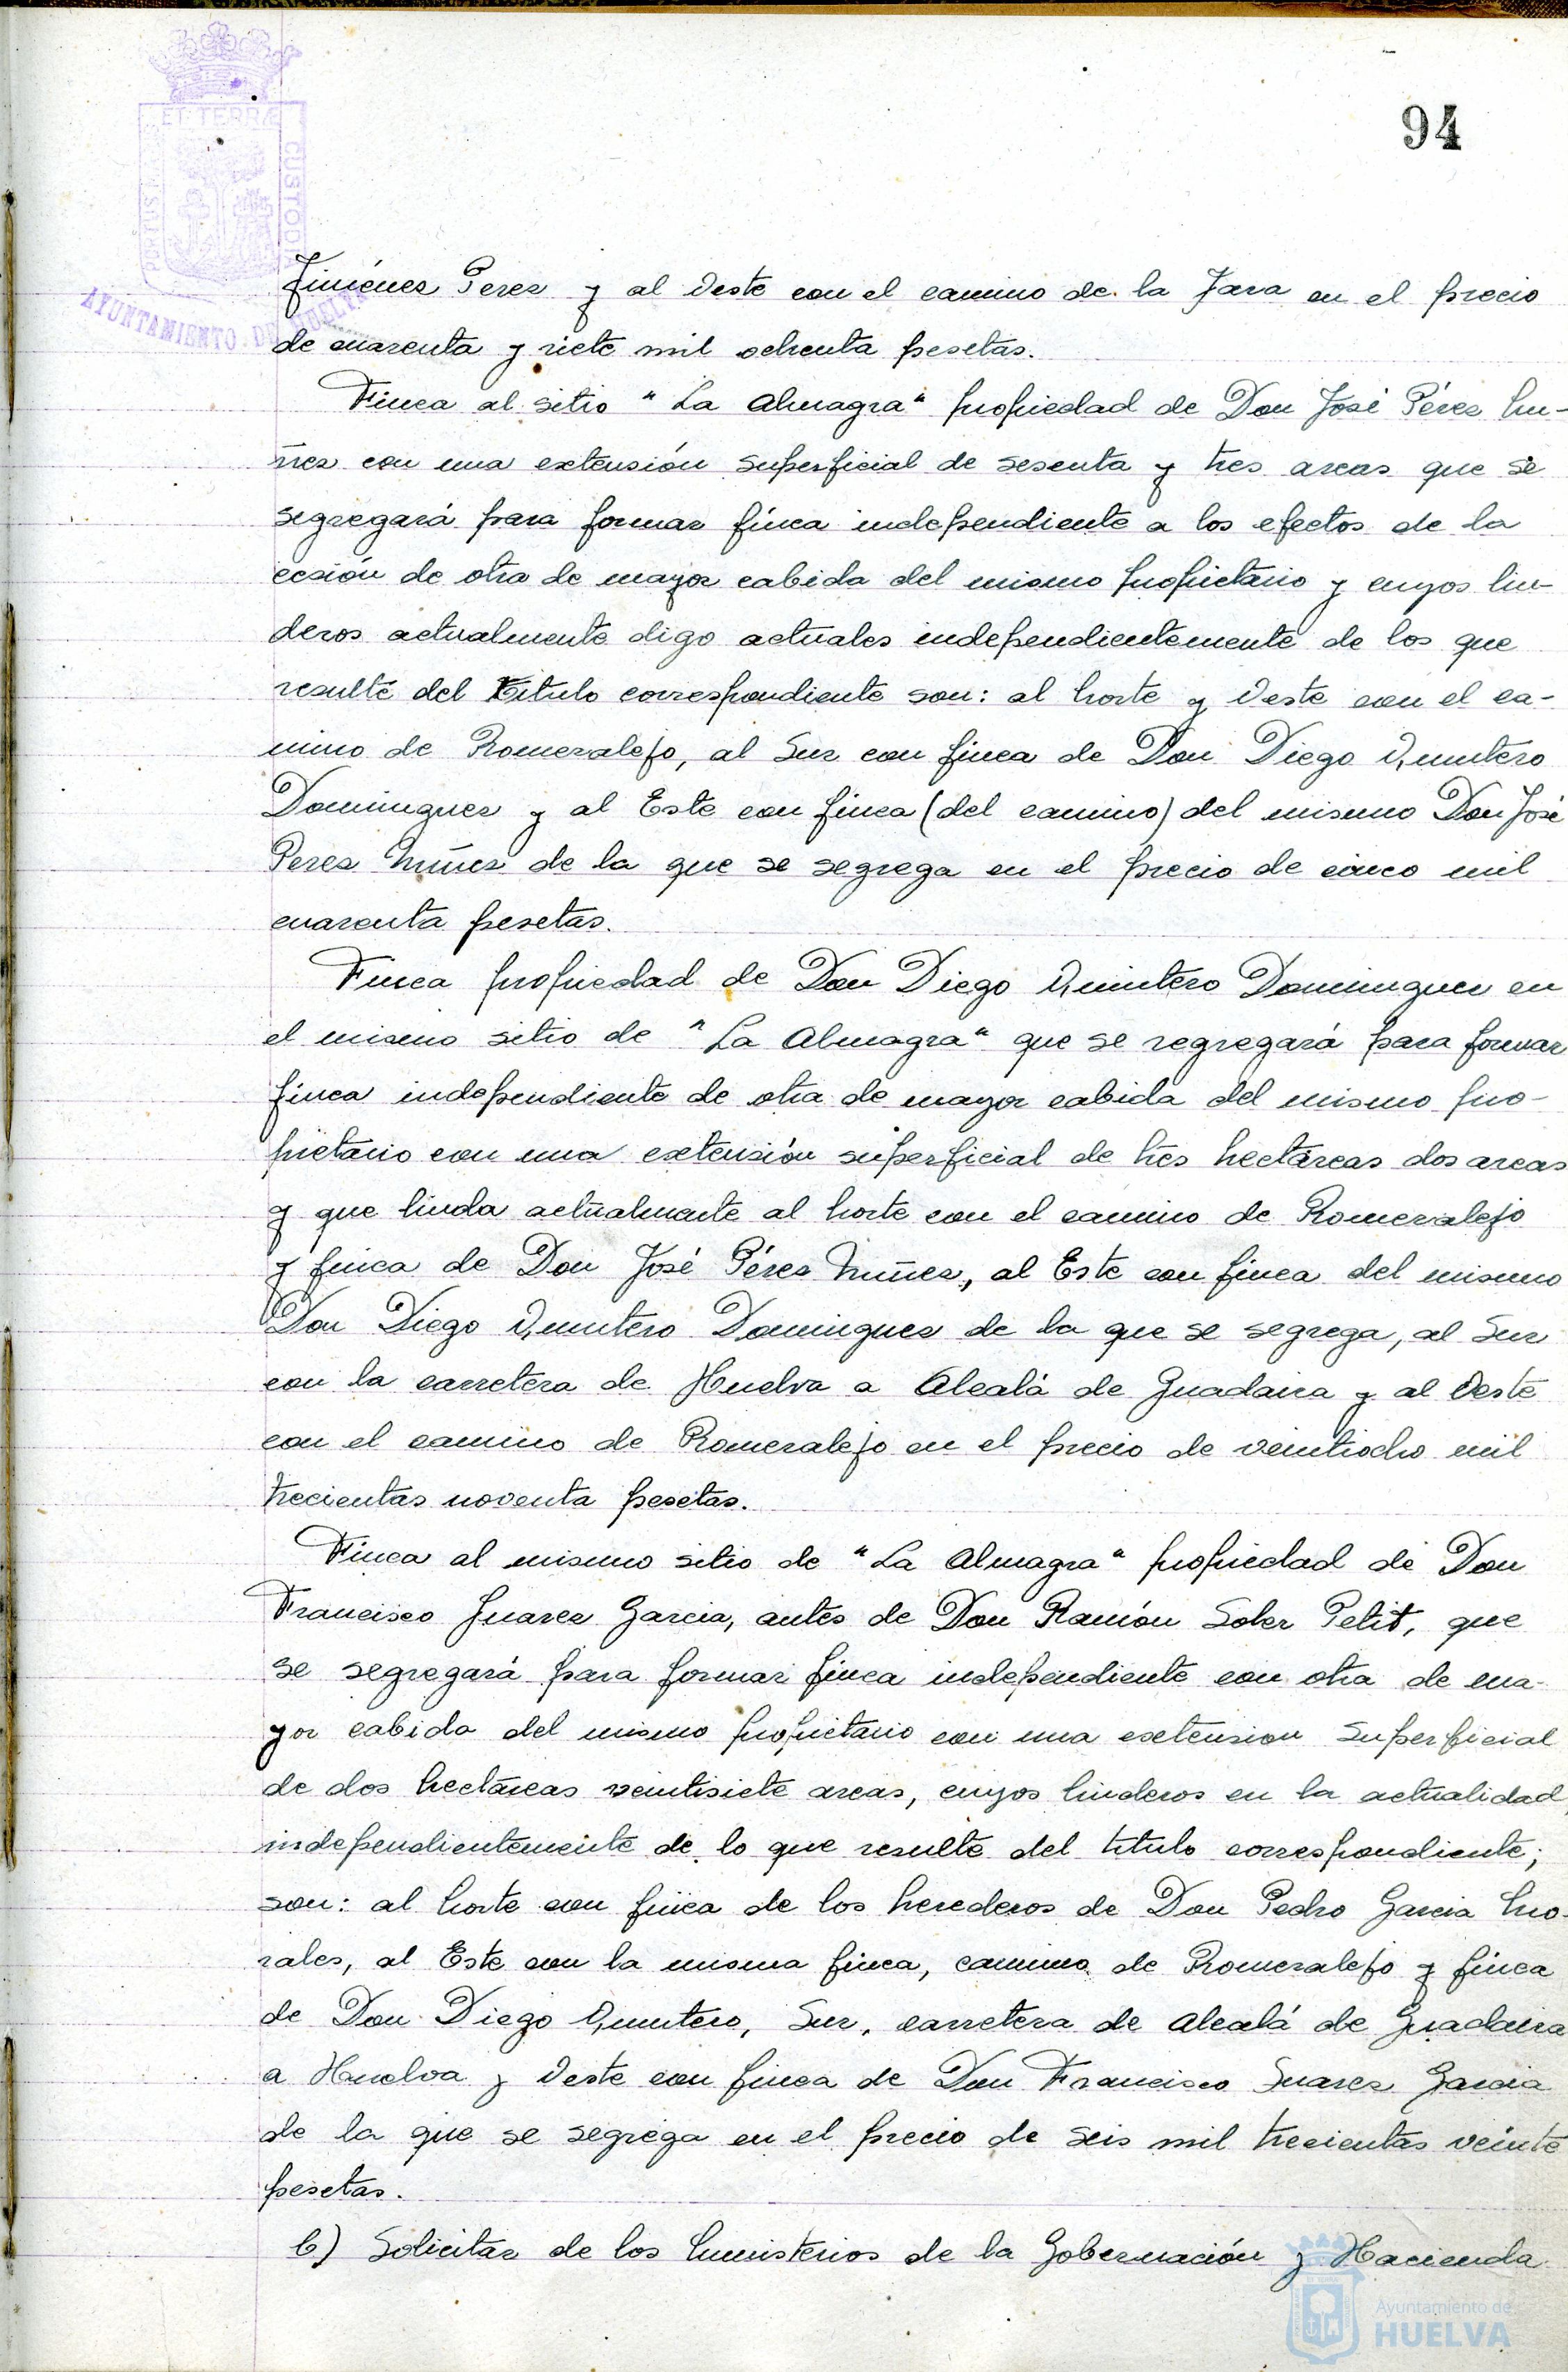 94
PORTUS MARIS
ET TERRÆ
CUSTODIA
AYUNTAMIENTO DE HUELVA
Jiménez Perez y al Oeste con el camino de la Jara en el precio
de cuarenta y siete mil ochenta pesetas.
Finca al sitio "La Almagra" propiedad de Don José Pérez Nu-
ñez con una extensión superficial de sesenta y tres areas que se
segregará para formar finca independiente a los efectos de la
cesión de otra de mayor cabida del mismo propietario y cuyos lin-
deros actualmente digo actuales independientemente de los que
resulte del titulo correspondiente son: al Norte y Oeste con el ca-
mino de Romeralejo, al Sur con finca de Don Diego Quintero
Dominguez y al Este con finca (del camino) del mismo Don José
Perez Nuñez de la que se segrega en el precio de cinco mil
cuarenta pesetas.
Finca propiedad de Don Diego Quintero Dominguez en
el mismo sitio de "La Almagra" que se regregará para formar
finca independiente de otra de mayor cabida del mismo pro-
pietario con una extensión superficial de tres hectáreas dos areas
y que linda actualmente al Norte con el camino de Romeralejo
y finca de Don José Pérez Nuñez, al Este con finca del mismo
Don Diego Quintero Dominguez de la que se segrega, al Sur
con la carretera de Huelva a Alcalá de Guadaira y al Oeste
con el camino de Romeralejo en el precio de veintiocho mil
trecientas noventa pesetas.
Finca al mismo sitio de "La Almagra" propiedad de Don
Francisco Juarez Garcia, antes de Don Ramón Soler Petit, que
se segregará para formar finca independiente con otra de ma-
yor cabida del mismo propietario con una extension superficial
de dos hectáreas veintisiete areas, cuyos linderos en la actualidad,
independientemente de lo que resulte del titulo correspondiente;
son: al Norte con finca de los herederos de Don Pedro Garcia Mo-
rales, al Este con la misma finca, camino de Romeralejo y finca
de Don Diego Quintero, Sur, carretera de Alcalá de Guadaira
a Huelva y Oeste con finca de Don Francisco Suarez Garcia
de la que se segrega en el precio de seis mil trecientas veinte
pesetas.
b) Solicitar de los Ministerios de la Gobernación y Hacienda
Ayuntamiento de
HUELVA